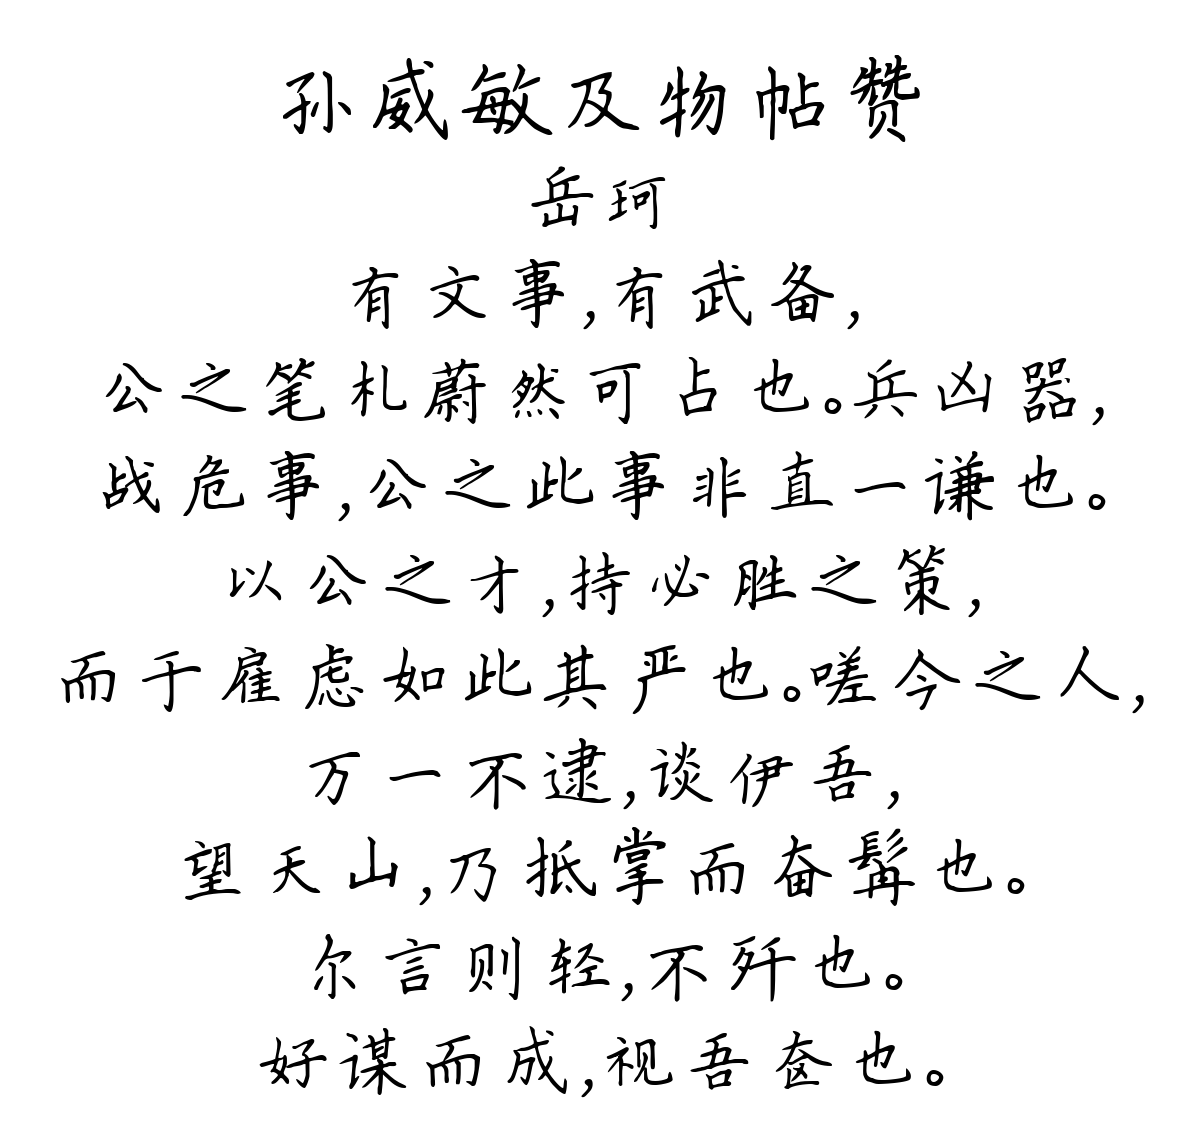 孙威敏及物帖赞
岳珂
有文事,有武备,
公之笔札蔚然可占也。兵凶器,
战危事,公之此事非直一谦也。
以公之才,持必胜之策,
而于雇虑如此其严也。嗟今之人,
万一不逮,谈伊吾,
望天山,乃抵掌而奋髯也。
尔言则轻,不歼也。
好谋而成,视吾奁也。